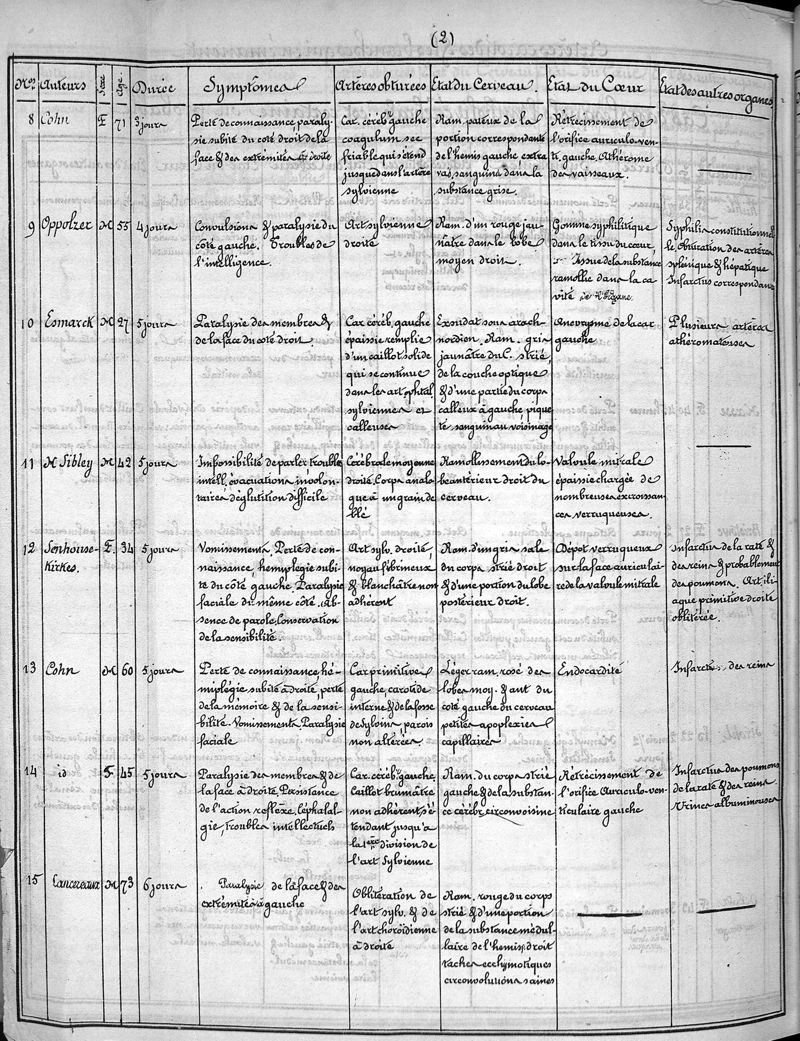 (2)
Nos Auteurs Sexe Age Durée Symptômes Artères obturées Etat du Cerveau. Etat du Cœur Etat des autres organes
8 Cohn F 71 3 jours
Perte de connaissance, paraly-
sie subite du coté droit de la
face & des extrémités à droite
Car. céréb. gauche
coagulum sec
friable qui s'étend
jusque dans l'artère
sylvienne
Ram. pateux de la
portion correspondente
de l'hémis. gauche extra
vas. sanguins dans la
substance grise.
Rétrécissement de
l'orifice auriculo-ven-
tri. gauche. Athérome
des vaisseaux.
9 Oppolzer M 55 4 jours
Convulsions & paralysie du
côté gauche. Troubles de
l'intelligence.
Art sylvienne
droite
Ram. d'un rouge jau-
nâtre dans le lobe
moyen droit.
Gomme syphilitique
dans le tissu du cœur,
Issue de la substance
ramollie dans la ca-
vité de l'organe
Syphilis constitutionnel
le obturation des artères
splénique & hépatique
Infarctus correspondants
10 Esmarck M 27 5 jours
Paralysie des membres &
de la face du coté droit.
Car. céréb. gauche
épaissie remplie
d'un caillot solide
qui se continue
dans les art. opthal
sylviennes et
calleuses
Exsudat sous arach-
noïdien. Ram. gris
jaunâtre du C. strié,
de la couche optique
& d'une partie du corps
calleux à gauche, pique
té sanguin au voisinage
Anévrysme de la car
gauche
Plusieurs artères
athéromateuses
11 M Sibley M 42 5 jours
Imposibilité de parler troubles
intell. évacuations involon-
taires, déglutition difficile
Cérébrale moyenne
droite. Corps analo
gue à un grain de
blé
Ramollissement du lo-
be antérieur droit du
cerveau.
Valvule mitrale
épaissie chargée de
nombreuses excroissan-
ces verruqueuses.
12 Senhouse-
Kirkes. F. 34 5 jours
Vomissements. Perte de con-
naissance, hémiplegie subi-
te du côté gauche Paralysie
faciale du même côté. Ab-
sence de parole. Conservation
de la sensibilité.
Art sylv. droite,
noyau fibrineux
& blanchâtre non
adhérent
Ram. d'un gris sale
du corps strié droit
& d'une portion du lobe
postérieur droit.
Dépot verruqueux
sur la face auriculai-
re de la valvule mitrale
Infarctus de la rate &
des reins & probablement
des poumons. Art ili-
aque primitive droite
oblitérée.
13 Cohn M 60 5 jours
Perte de connaissance, hé-
miplégie subite à droite, perte
de la mémoire & de la sensi-
bilité. Vomissements. Paralysie
faciale
Car primitive
gauche, carotide
interne & de la fosse
de Sylvius parois
non altérées
Léger ram. rosé des
lobes moy. & ant du
coté gauche du cerveau
petites apoplexies
capillaires
Endocardite
Infarctus des reins
14 id F. 45 5 jours
Paralysie des membres & de
la face à droite, Persistance
de l'action reflexe, Céphalal-
gie, troubles intellectuels
Car. céréb. gauche,
Caillot brunâtre
non adhérent, s'é
tendant jusqu'à
la 1ère division de
l'art Sylvienne
Ram. du corps strié
gauche & de la substan-
ce céréb. circonvoisine
Rétrécissement de
l'orifice Auriculo-ven-
triculaire gauche
Infarctus des poumons
de la rate & des reins.
Urines albumineuses
15 Lancereaux M 73 6 jours
Paralysie de la face & des
extrémités à gauche
Oblitération de
l'art sylv. & de
l'art choroïdienne
à droite
Ram. rouge du corps
strié & d'une portion
de la substance médul-
laire de l'hémis. droit
taches ecchymotiques
circonvolutions saines